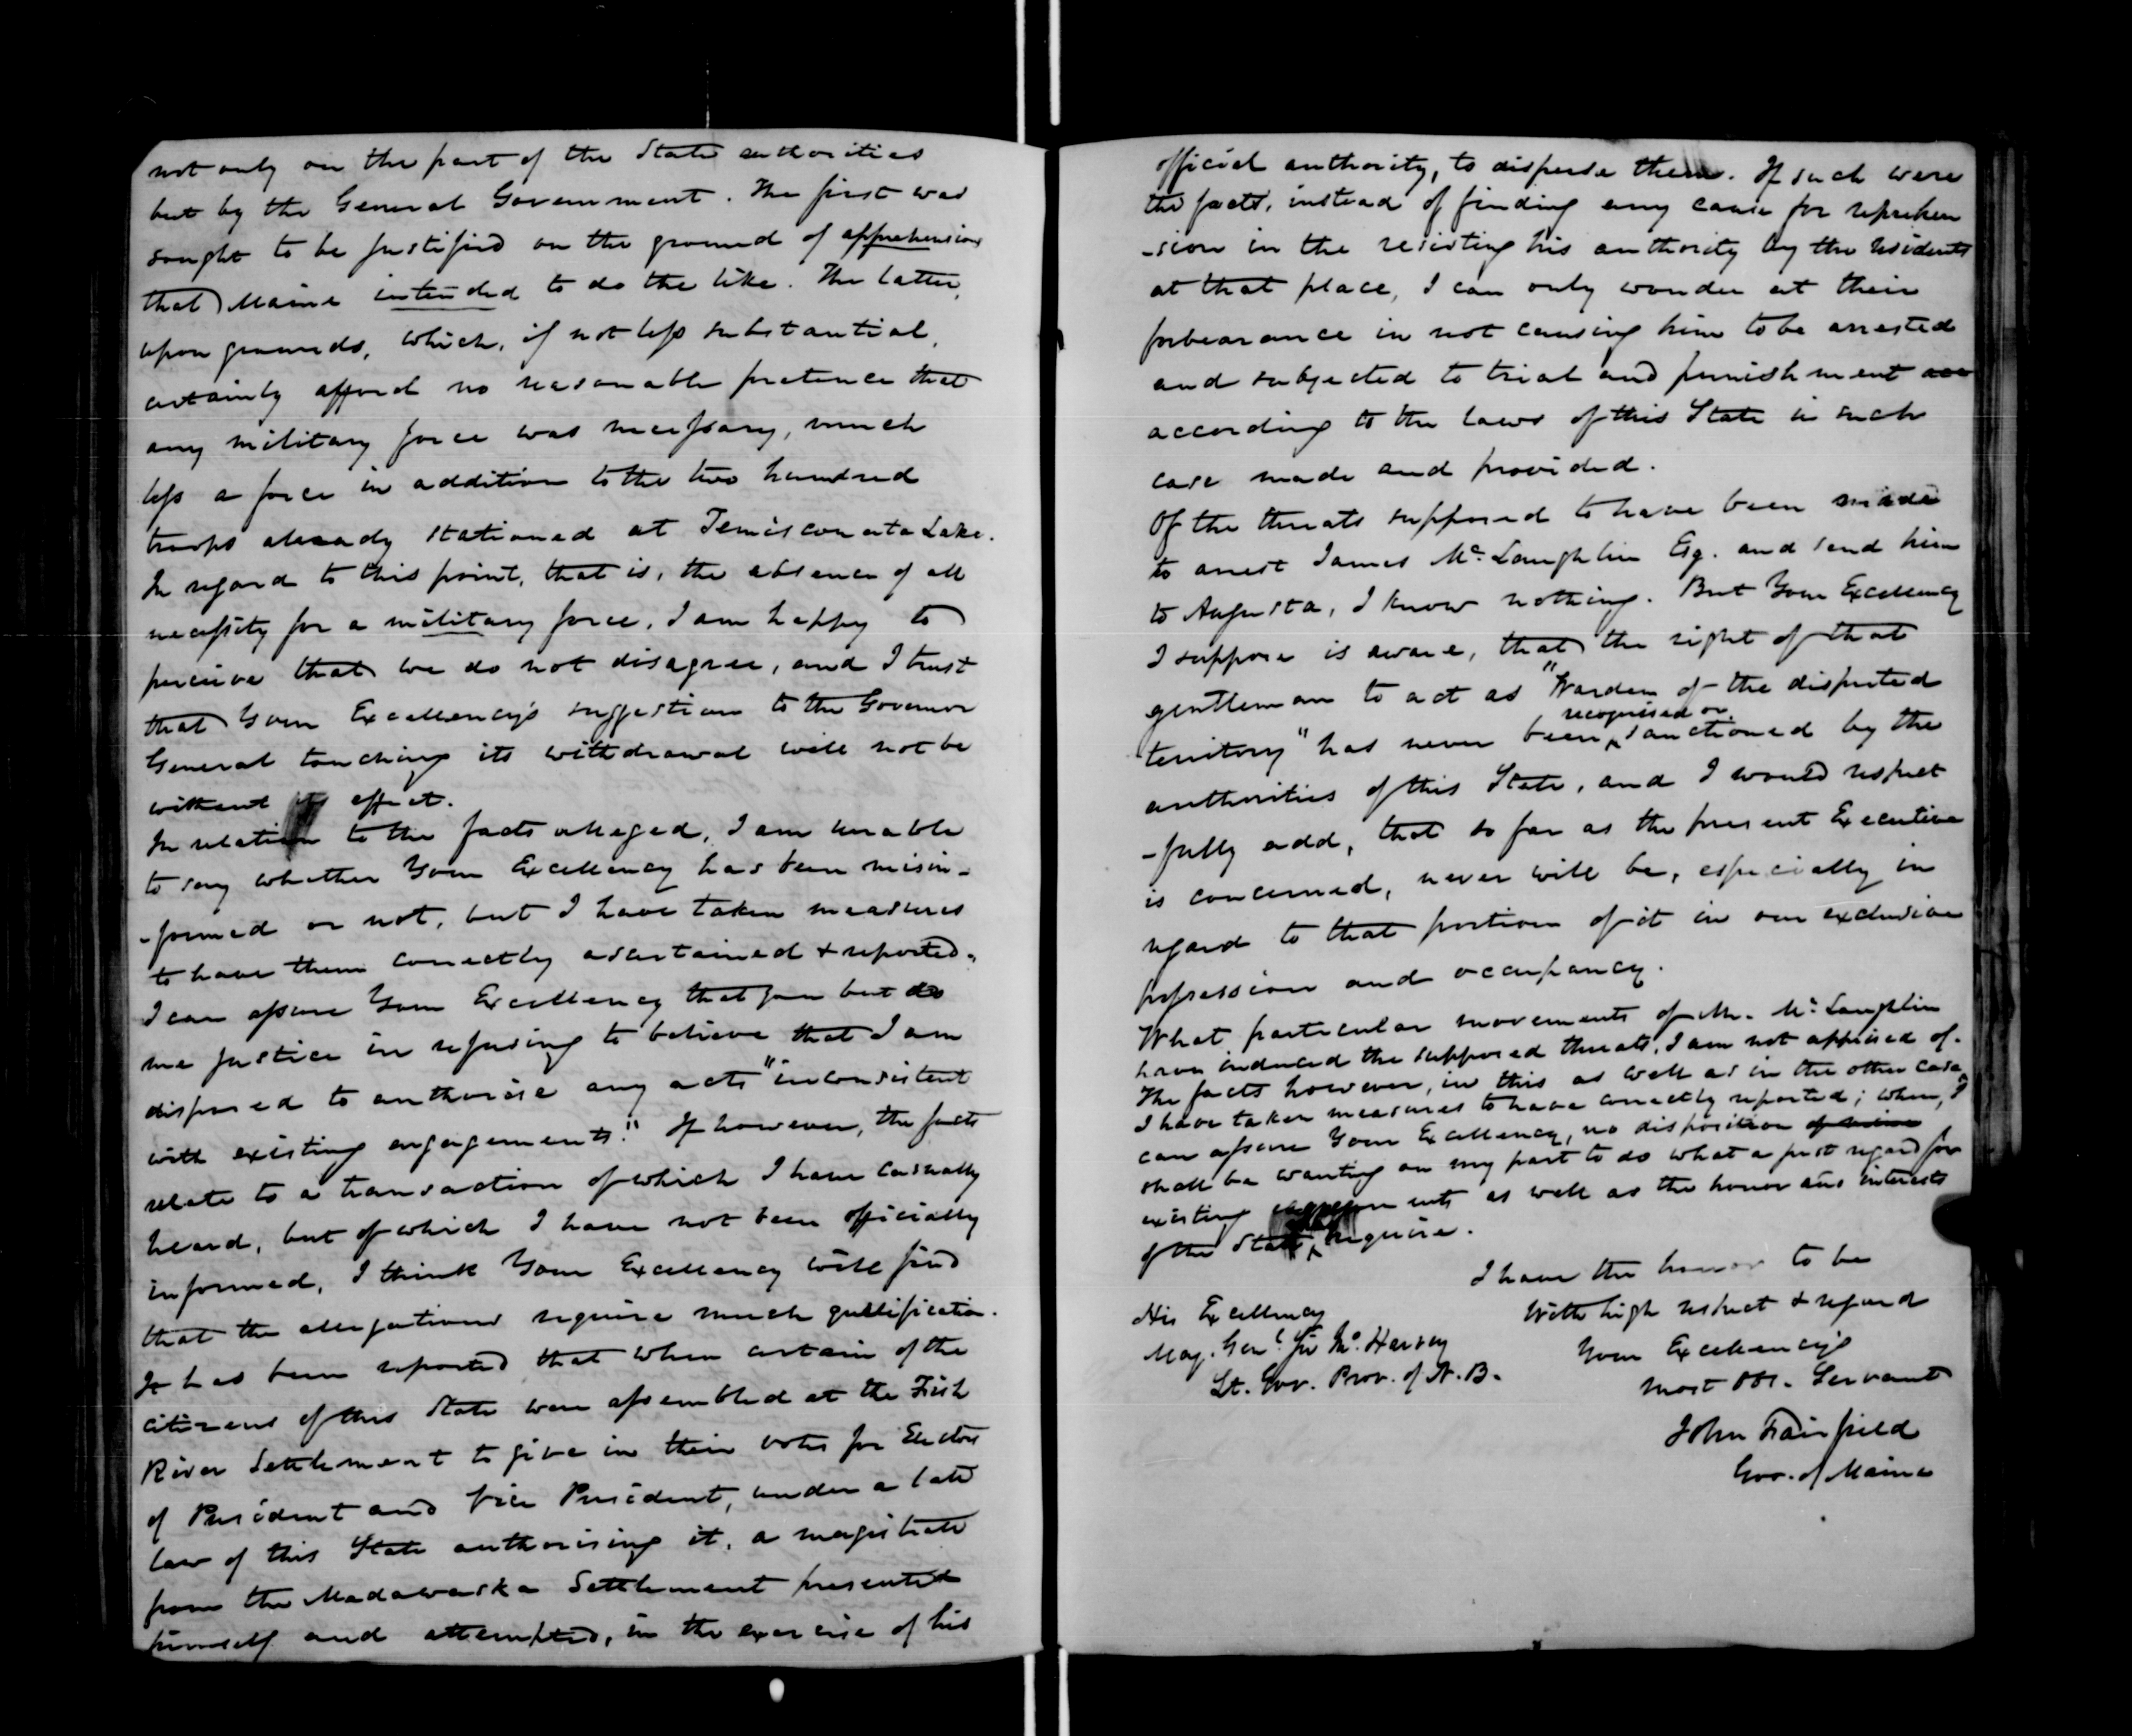 not only on the part of the State authorities
but by the General Government. The first was
sought to be justified on the ground of apprehensions
that Maine intended to do the like. The latter,
upon grounds, which, if not less substantial,
certainly afford no reasonable pretence that
any military force was necessary, much
less a force in addition to the two hundred
troops already stationed at Temiscouata Lake.
In regard to this point, that is, the absence of all
necessity for a military force, I am happy to
perceive that we do not disagree, and I trust
that Your Excellency's suggestion to the Governor
General touching its withdrawal will not be
without its effect.
In relation to the facts alleged, I am unable
to say whether Your Excellency has been misin-
-formed or not, but I have taken measures
to have them correctly ascertained & reported.
I can assure Your Excellency that you but do
me justice in refusing to believe that I am
disposed to authorise any acts "inconsistent
with existing engagements." If however, the facts
relate to a transaction of which I have casually
heard, but of which I have not been officially
informed, I think Your Excellency will find
that the allegations require much qualification.
It has been reported that when certain of the
citizens of this State were assembled at the Fish
River Settlement to give in their votes for Electors
of President and Vice President, under a late
law of this State authorising it, a magistrate
from the Madawaska Settlement presented
himself and attempted, in the exercise of his
official authority, to disperse them. If such were
the facts, instead of finding any cause for reprehen
-sion in the resisting his authority by the residents
at that place, I can only wonder at their
forbearance in not causing him to be arrested
and subjected to trial and punishment
according to the laws of this State in such
case made and provided.
Of the threats supposed to have been made
to arrest James Mc. Laughlin Esq. and send him
to Augusta, I know nothing. But Your Excellency
I suppose is aware, that the right of that
gentleman to act as "Warden of the disputed
recognised or
territory" has never been sanctioned by the
authorities of this State, and I would respect
-fully add, that so far as the present Executive
is concerned, never will be, especially in
regard to that portion of it in our exclusive
possession and occupancy.
What particular movements of Mr. Mc. Laughlin
have induced the supposed threats, I am not apprised of.
The facts however, in this as well as in the other case,
I have taken measures to have correctly reported; when, I
can assure Your Excellency, no disposition of mine
shall be wanting on my part to do what a just regard for
existing engagements as well as the honor and interests
of the State, require.
I have the honor to be
With high respect & regard
Your Excellency's
most Obt. Servant
John Fairfield
Gov. of Maine
His Excellency
Maj. Genl. Sir Jno. Harvey
Lt. Gov. Prov. of N. B.